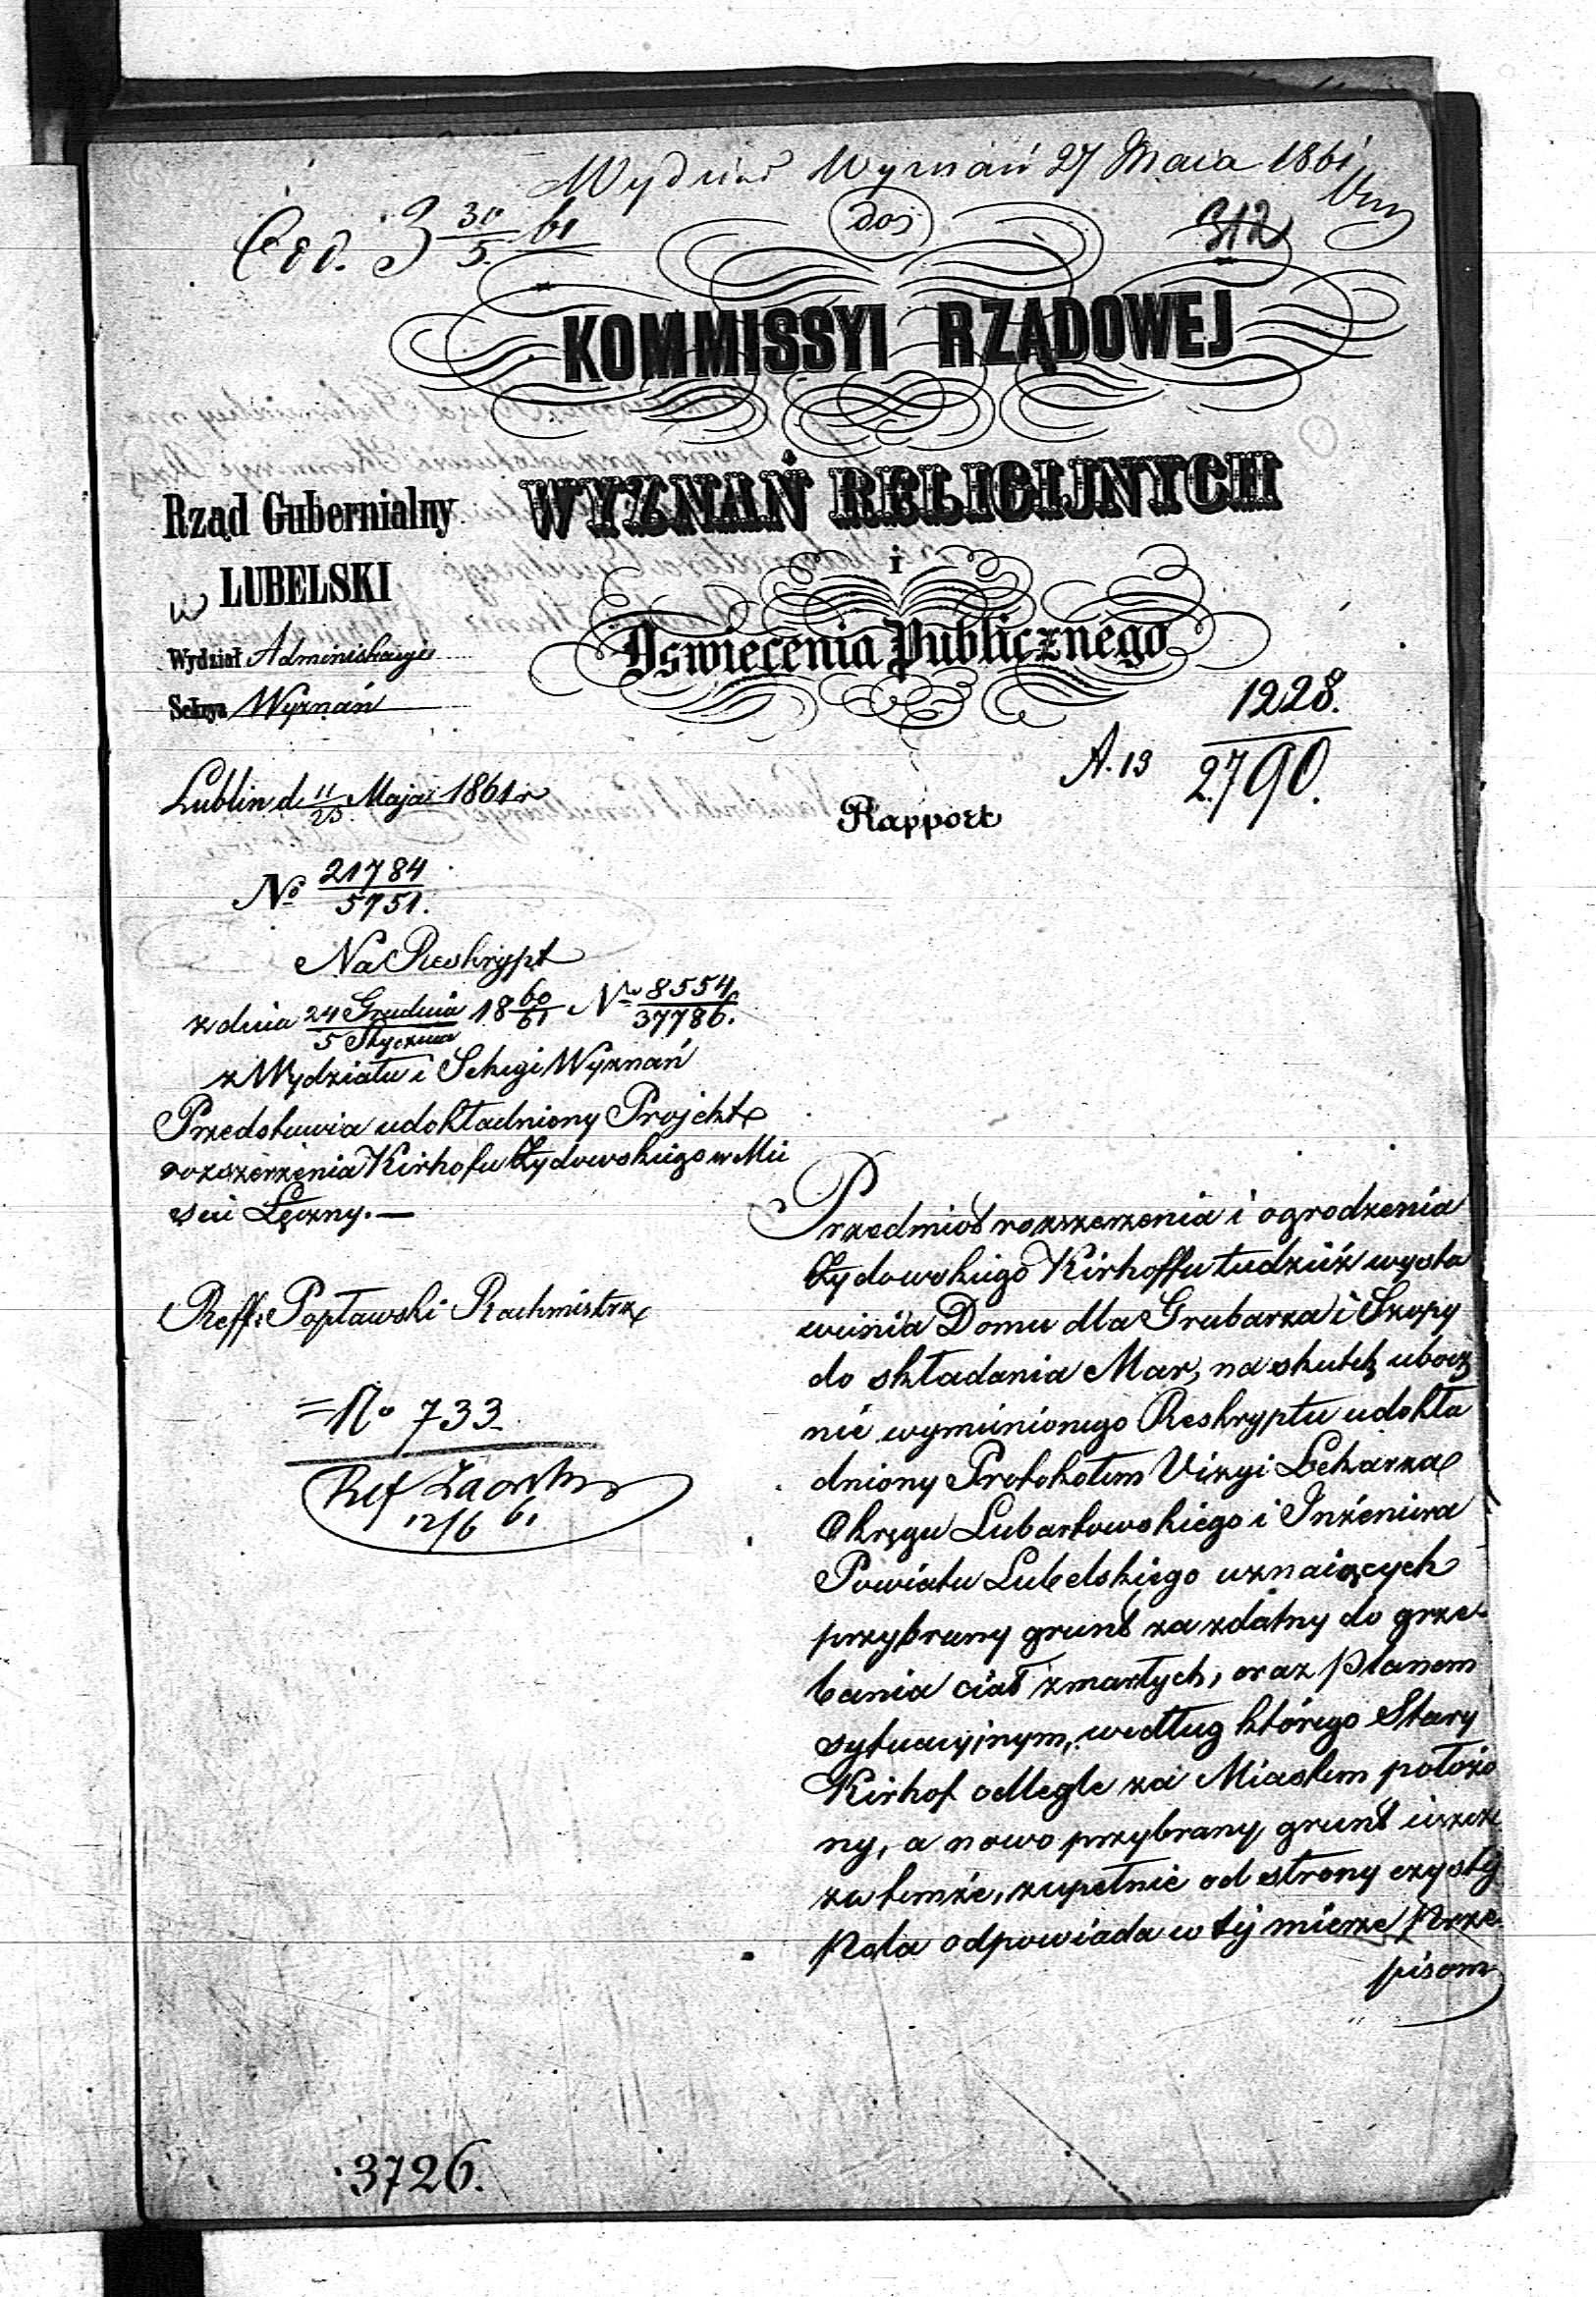 Wydział Wyznań 27 Maia 1861
do
312
KOMMISSYI RZĄDOWEJ
WYZNAŃ RELIGIJNYCH
i
Oswiecenia Publicznego
Rząd Gubernialny
LUBELSKI
w
Wydział Administracyi
Sekcya Wyznań
1228.
A. 13 2790.
Lublin d. 11/23 Maja 1861 r
Rapport
No 21784/5751.
Na Reskrypt
z dnia 24 Grudnia/5 Stycznia 18 60/61 No 8554/37786.
z Wydziału i Sekcyi Wyznań
Przedstawia udokładniony Projekt
rozszerzenia Kirhofu Żydowskiego w Mie
scie Łęczny. —
Reff: Popławski Rachmistrz
= No 733.
Ref
12/6 61.
Przedmiot rozszerzenia i ogrodzenia
Żydowskiego Kirhoffu tudzież wysta
wienia Domu dla Grabarza i Szopy
do składania Mar, na skutek ubocz
nie wymienionego Reskryptu udokła
dniony Protokołem Wizyi Lekarza
Okręgu Lubartowskiego i Inżeniera
Powiatu Lubelskiego uznaiących
przybrany grunt za zdatny do grze-
bania ciał zmarłych, oraz planem
sytuacyjnym, według którego Stary
Kirhof odlegle za Miastem położo
ny, a nowo przybrany grunt ieszcze
za temże, zupełnie od strony czysty
Pola odpowiada w tej mierze Prze-
pisom
3726.